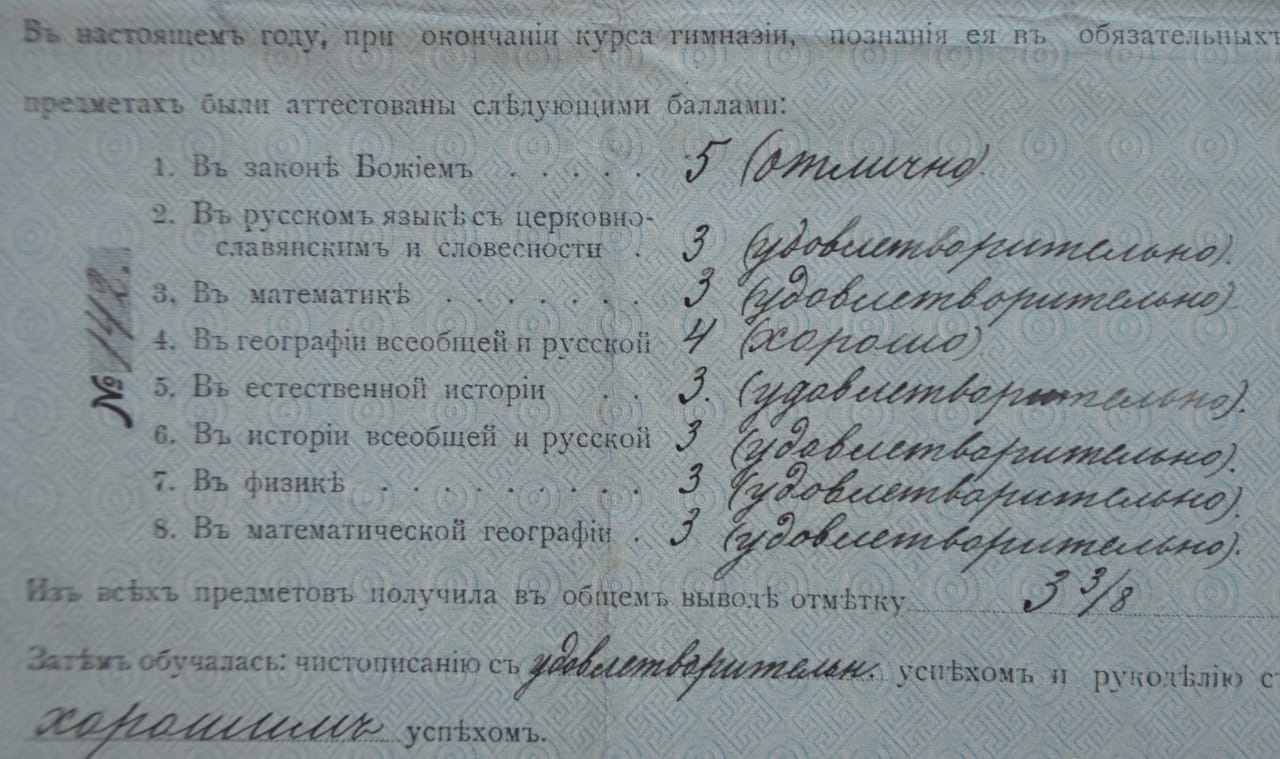 Въ настоящемъ году, при окончаніи курса гимназіи, познанія ея въ обязательныхъ
предметахъ были аттестованы слѣдующими баллами:
1. Въ законѣ Божіемъ . . . . . 5 (отлично).
2. Въ русскомъ языкѣ съ церковно-
славянскимъ и словесности . 3 (удовлетворительно).
3. Въ математикѣ . . . . . . . 3 (удовлетворительно)
4. Въ географіи всеобщей и русской 4 (хорошо)
5. Въ естественной исторіи . . 3. (удовлетворительно).
6. Въ исторіи всеобщей и русской 3 (удовлетворительно).
7. Въ физикѣ . . . . . . . . . 3 (удовлетворительно).
8. Въ математической географіи . 3 (удовлетворительно).
№ 142.
Изъ всѣхъ предметовъ получила въ общемъ выводѣ отмѣтку 3 3/8
Затѣмъ обучалась: чистописанію съ удовлетворительн. успѣхомъ и рукодѣлію съ
хорошимъ успѣхомъ.